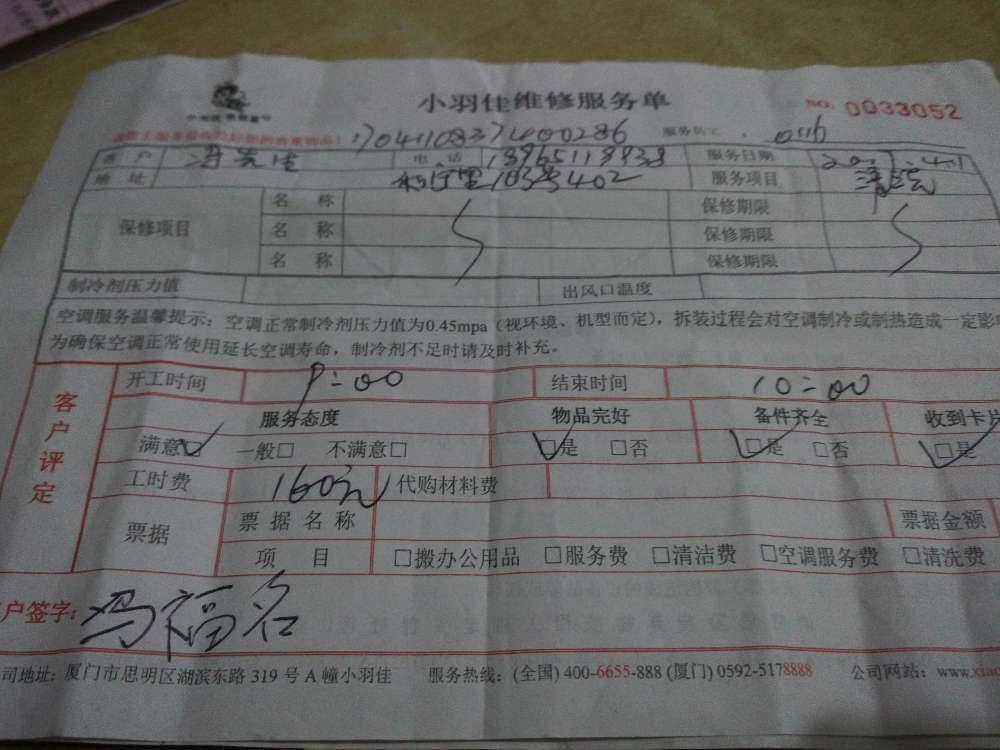 小羽佳维修服务单
NO: 0033052
1704110837400286 服务员工 0116
客户 电话 服务日期
地址 103号402 服务项目 清洗
保修项目 名称 保修期限
名称 保修期限
名称 保修期限
制冷剂压力值 出风口温度
空调服务温馨提示：空调正常制冷剂压力值为0.45mpa（视环境、机型而定），拆装过程会对空调制冷或制热造成一定影
为确保空调正常使用延长空调寿命，制冷剂不足时请及时补充。
客户评定
开工时间 9:00 结束时间 10:00
服务态度 物品完好 备件齐全 收到卡片
满意□ 一般□ 不满意□ □是 □否 □是 □否 □是
工时费 160元 代购材料费
票据 票据名称 票据金额
项目 □搬办公用品 □服务费 □清洁费 □空调服务费 □清洗费
户签字: 冯福名
司地址: 厦门市思明区湖滨东路 319 号 A 幢小羽佳 服务热线: (全国) 400-6655-888 (厦门) 0592-5178888 公司网站: www.xiao